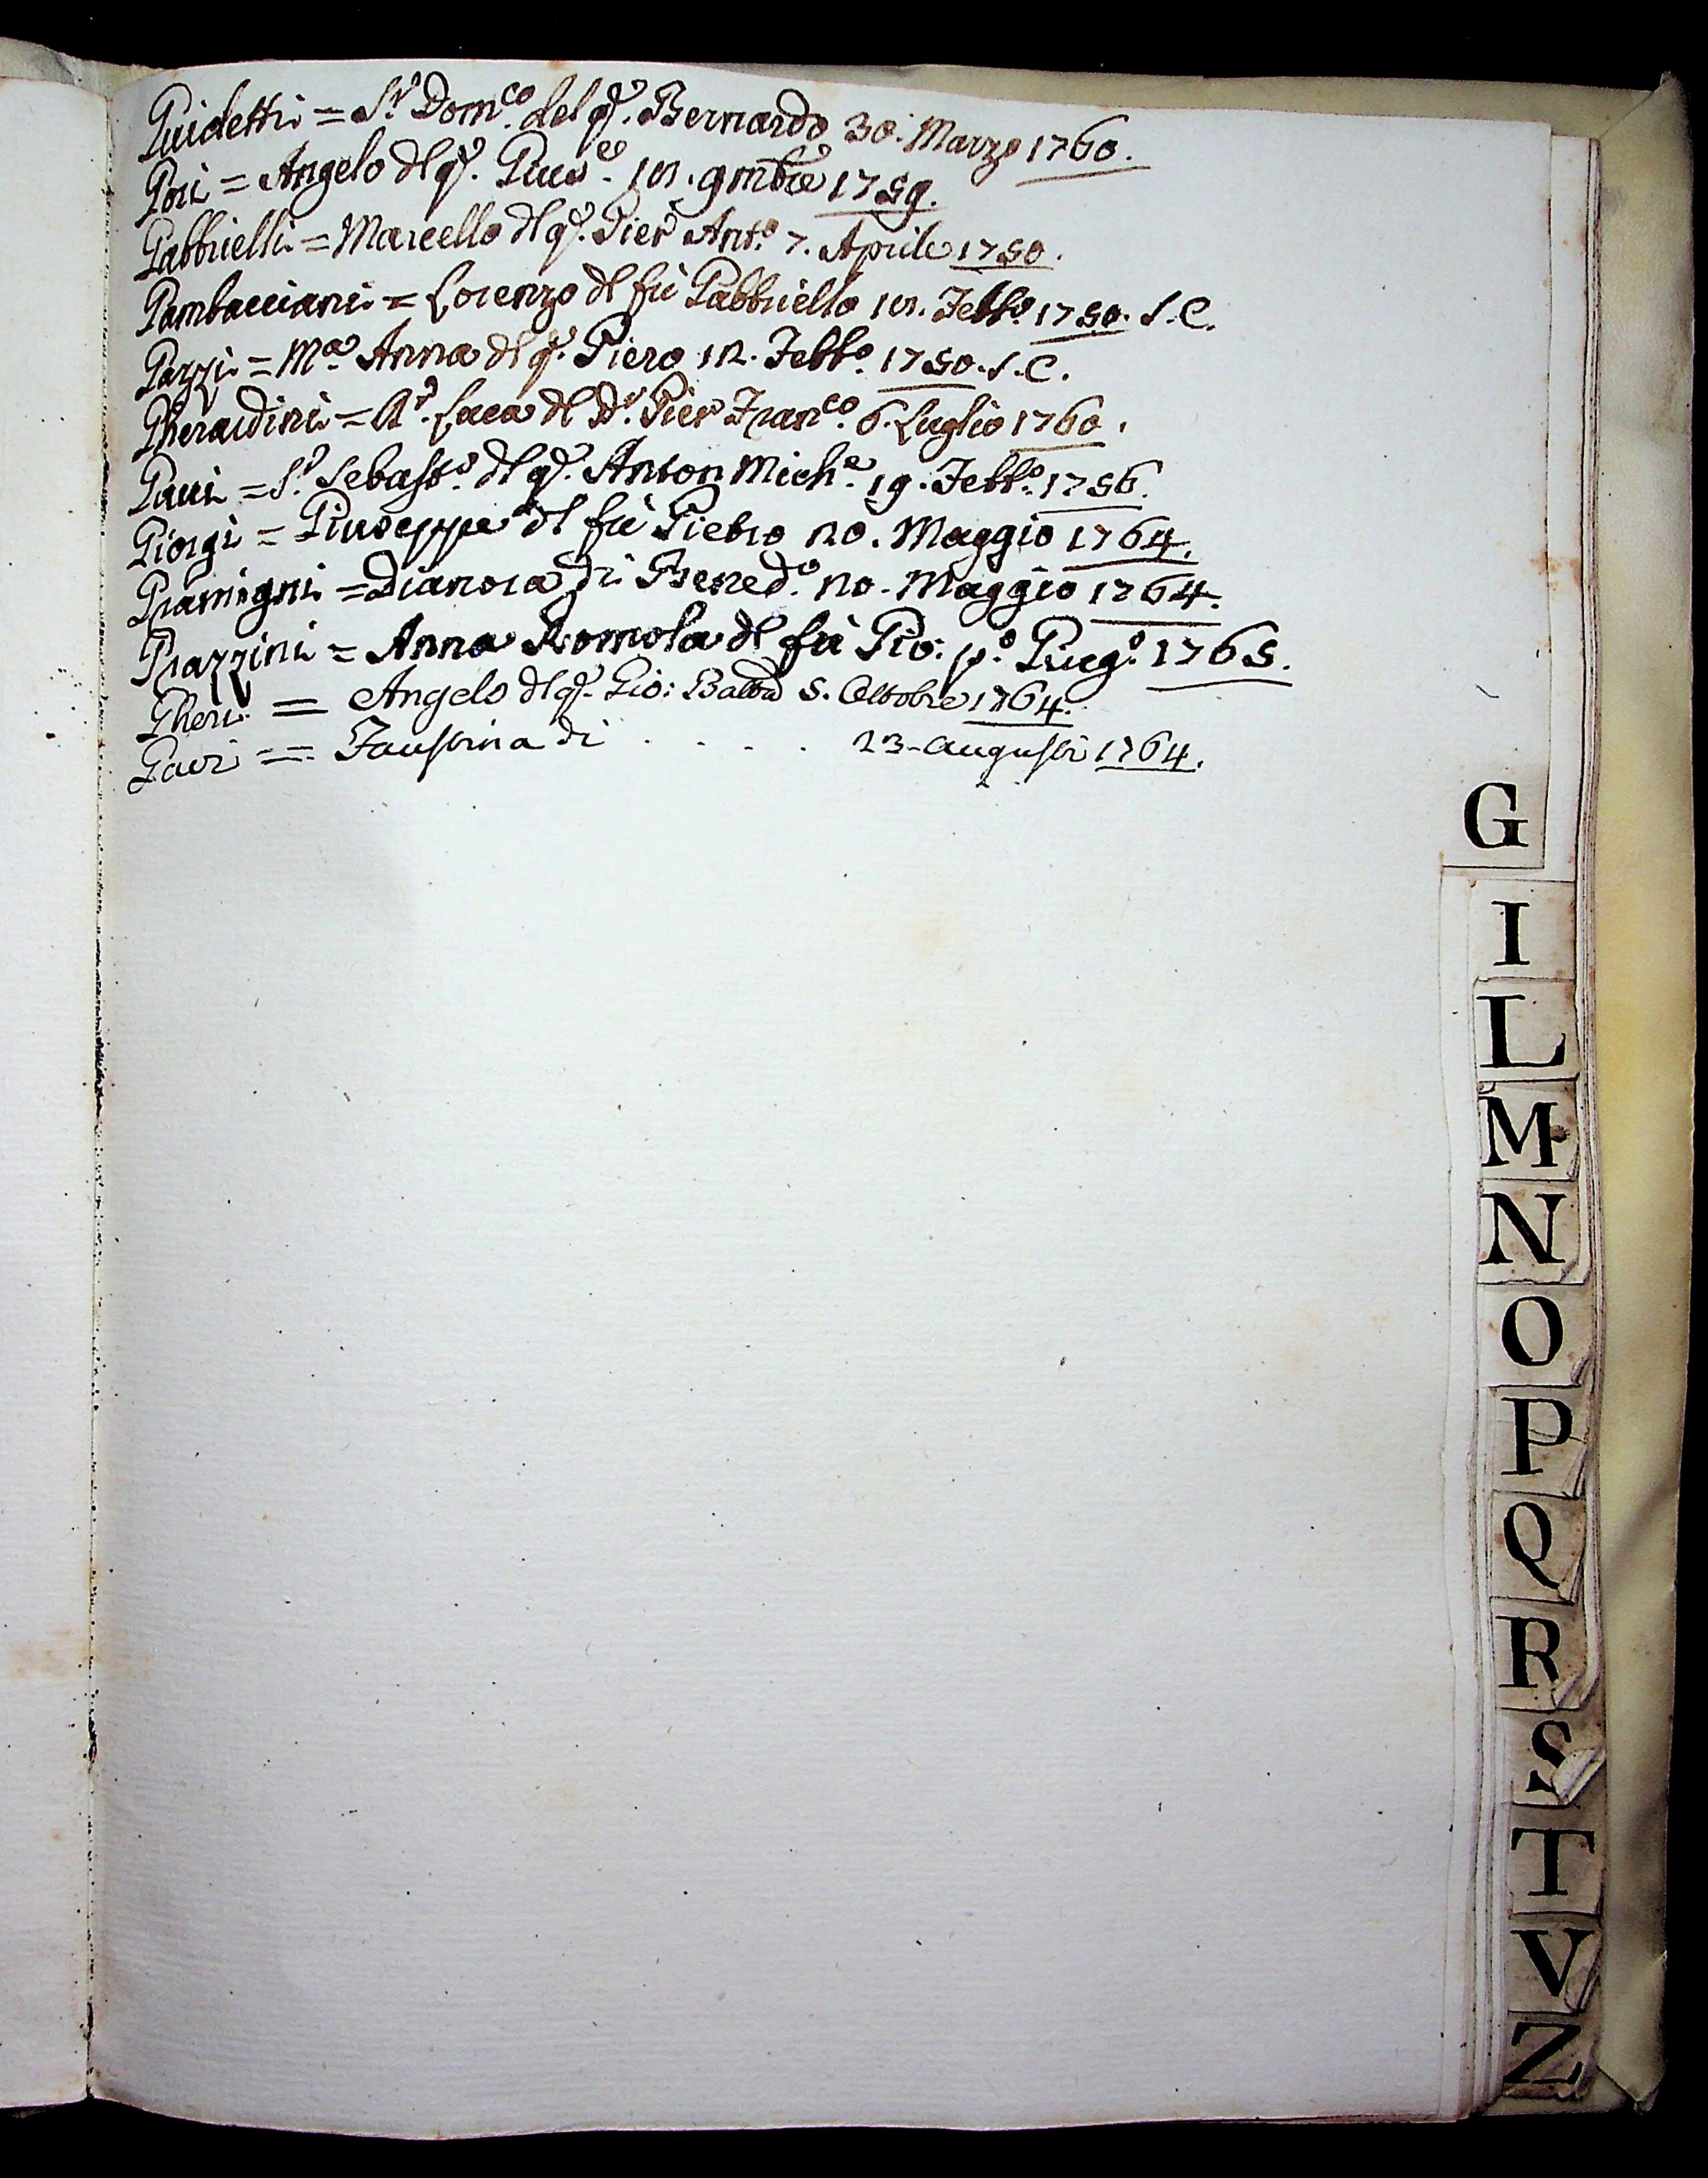 Guidetti = S.r Dom.co del q.m Bernardo 30. Marzo 1760.
Gori = Angelo dl q.m Gius.e 9mbre 1759.
Gabbrielli = Marcello dl q.m Pier Ant.o 7. Aprile 1750.
Gambacciani = Lorenzo dl fù Gabbriello Febb.o 1750. S.C.
Gazzi = M.a Anna dl q.m Piero 12. Febb.o 1750. S.C.
Gherardini = Luca dl D.r Pier Fran.co 6. Luglio 1760.
Gaui = S.r Sebast.o dl q.m Anton Mich.e 19. Febb.o 1756.
Giorgi = Giuseppe dl fù Pietro 20. Maggio 1764.
Giamigni = Dianora di Bened.o 20. Maggio 1764.
Grazzini = Anna Romola dl fù Gio: p.o Giug.o 1765.
Gheri = Angelo dl q.m Gio: Batta 5. Ottobre 1764.
Gavi == Faustina di . . . . 23. Augusti 1764.
G
I
L
M
N
O
P
Q
R
S
T
V
Z